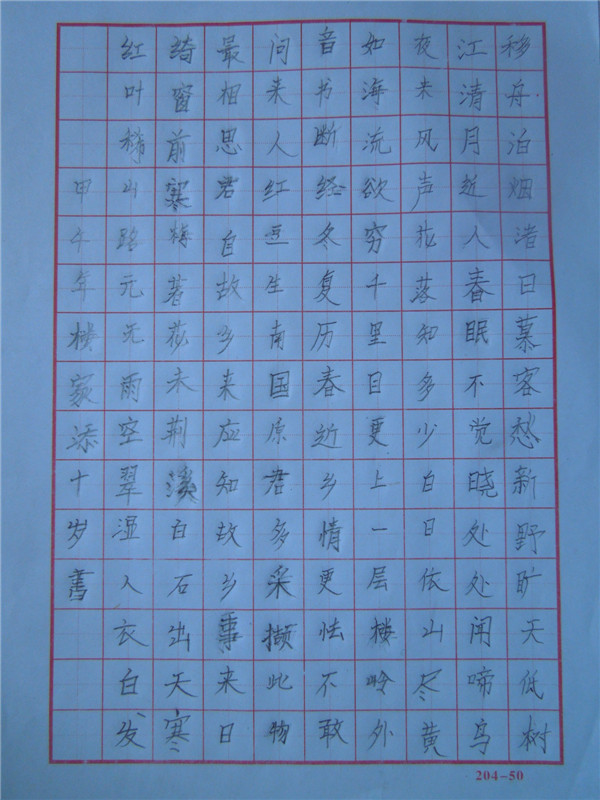 移舟泊烟渚日暮客愁新野旷天低树
江清月近人春眠不觉晓处处闻啼鸟
夜来风声花落知多少白日依山尽黄
如海流欲穷千里目更上一层楼岭外
音书断经冬复历春近乡情更怯不敢
问来人红豆生南国原君多采撷此物
最相思君自故乡来应知故乡事来日
绮窗前寒特著花未荆溪白石出天寒
红叶稀山路元无雨空翠湿人衣白发
甲午年楼家添十岁書
204-50